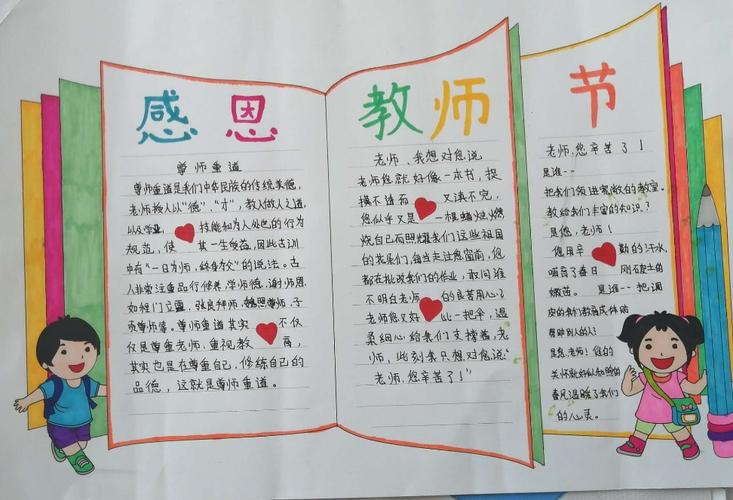 感恩教师节
尊师重道
尊师重道是我们中华民族的传统美德,
老师授人以“德”、“才”,教人做人之道,
以及学业、技能和为人处世的行为
规范,使其一生受益,因此古训
中有“一日为师,终身为父”的说法。古
人非常注重品行修养,学师德,谢师恩
如程门立雪,张良拜师,魏照尊师,子
贡尊师等。尊师重道其实不仅
仅是尊重老师,重视教育,
其实也是在尊重自己,修练自己的
品德,这就是尊师重道。
老师、我想对您说
老师您就好像一本书,捉
摸不透而又读不完,
您似乎又是一根蜡烛燃
烧自己而照耀我们这些祖国
的花朵们,每当走过您窗前,您
都在批改我们的作业,敢问谁
不明白老师的良苦用心?
老师您又好比一把伞,温
柔细心给我们支撑着,老
师,此刻我只想对您说:
“老师,您辛苦了!”
老师,您辛苦了!
是谁--
把我们领进宽敞的教室。
教给我们丰富的知识?
是您,老师!
您用辛勤的汗水,
哺育了春日刚石破土的
嫩苗。是谁--把调
皮的我们教育成
帮助别人的人?
是您,老师!您的
关怀就好似和煦的
春风温暖了我们
的心灵。